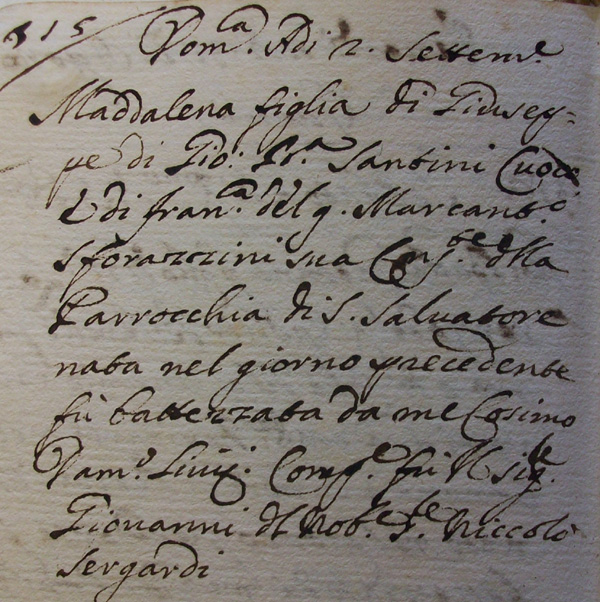 315 Dom.ª Adi 2. Settem.e
Maddalena figlia di Giusep=
pe di Gio: Bta Santini Cuoco
E di Fran.ª del q. Marcant.o
Sforazzini sua Conj.te della
Parrocchia di S. Salvatore
nata nel giorno precedente
fù battezzata da me Cosimo
Dam.o Comp.e fù Il Sig.re
Giovanni del Nob.e S.re Niccolò
Sergardi